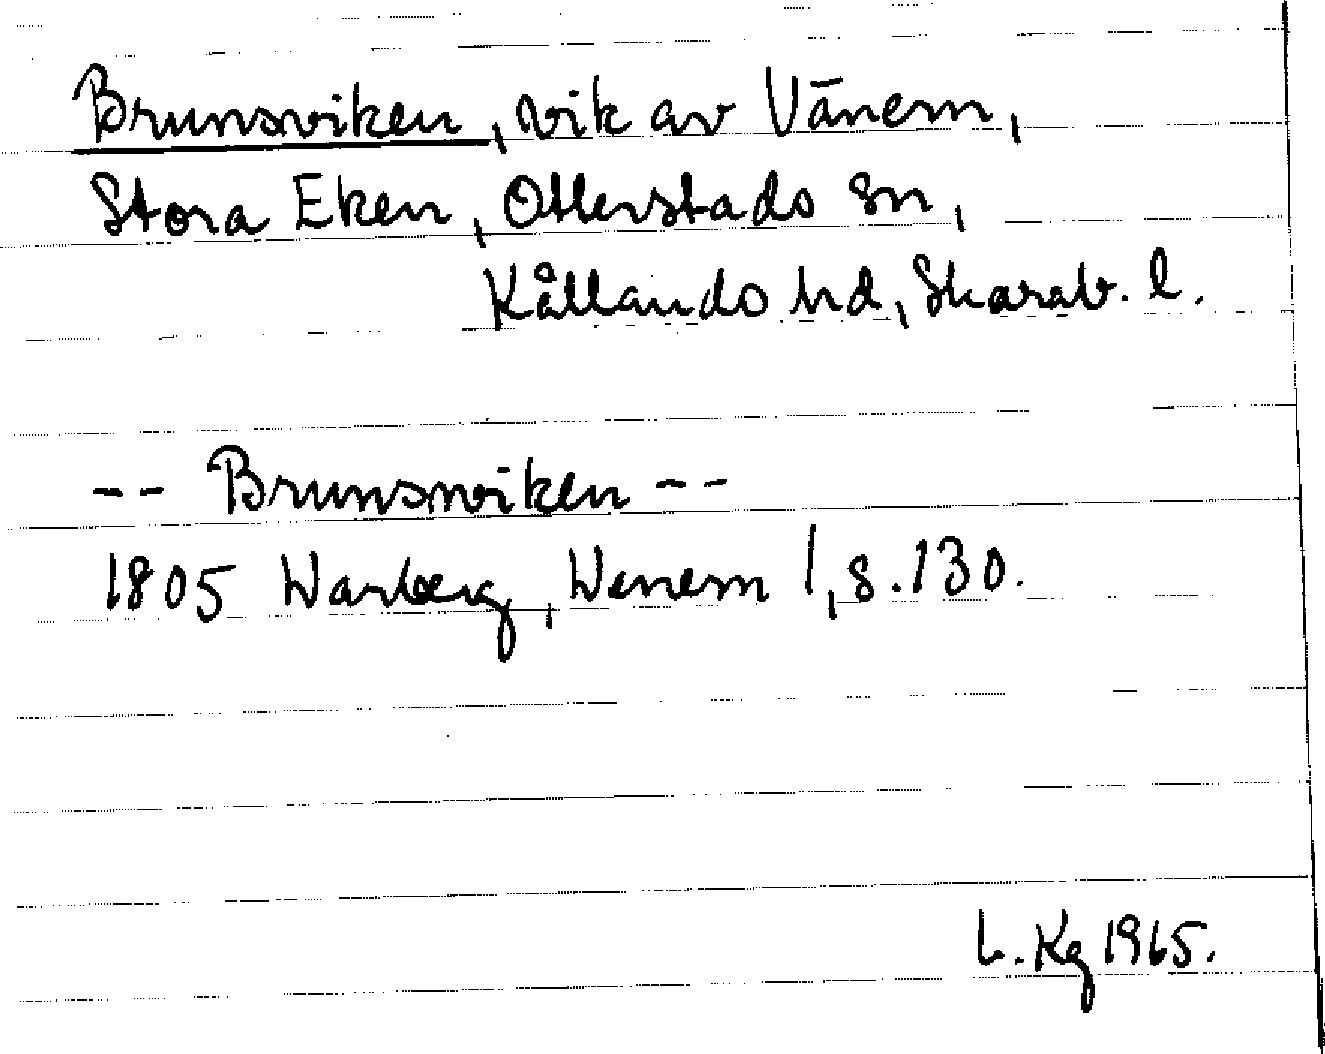 Brunsviken, vik av Vänern,
Stora Eken, Otterstads sn,
Kållands hd, Skarab. l.
-- Brunsviken --
1805 Warberg, Wenern I, s. 130.
L. Kg 1965.